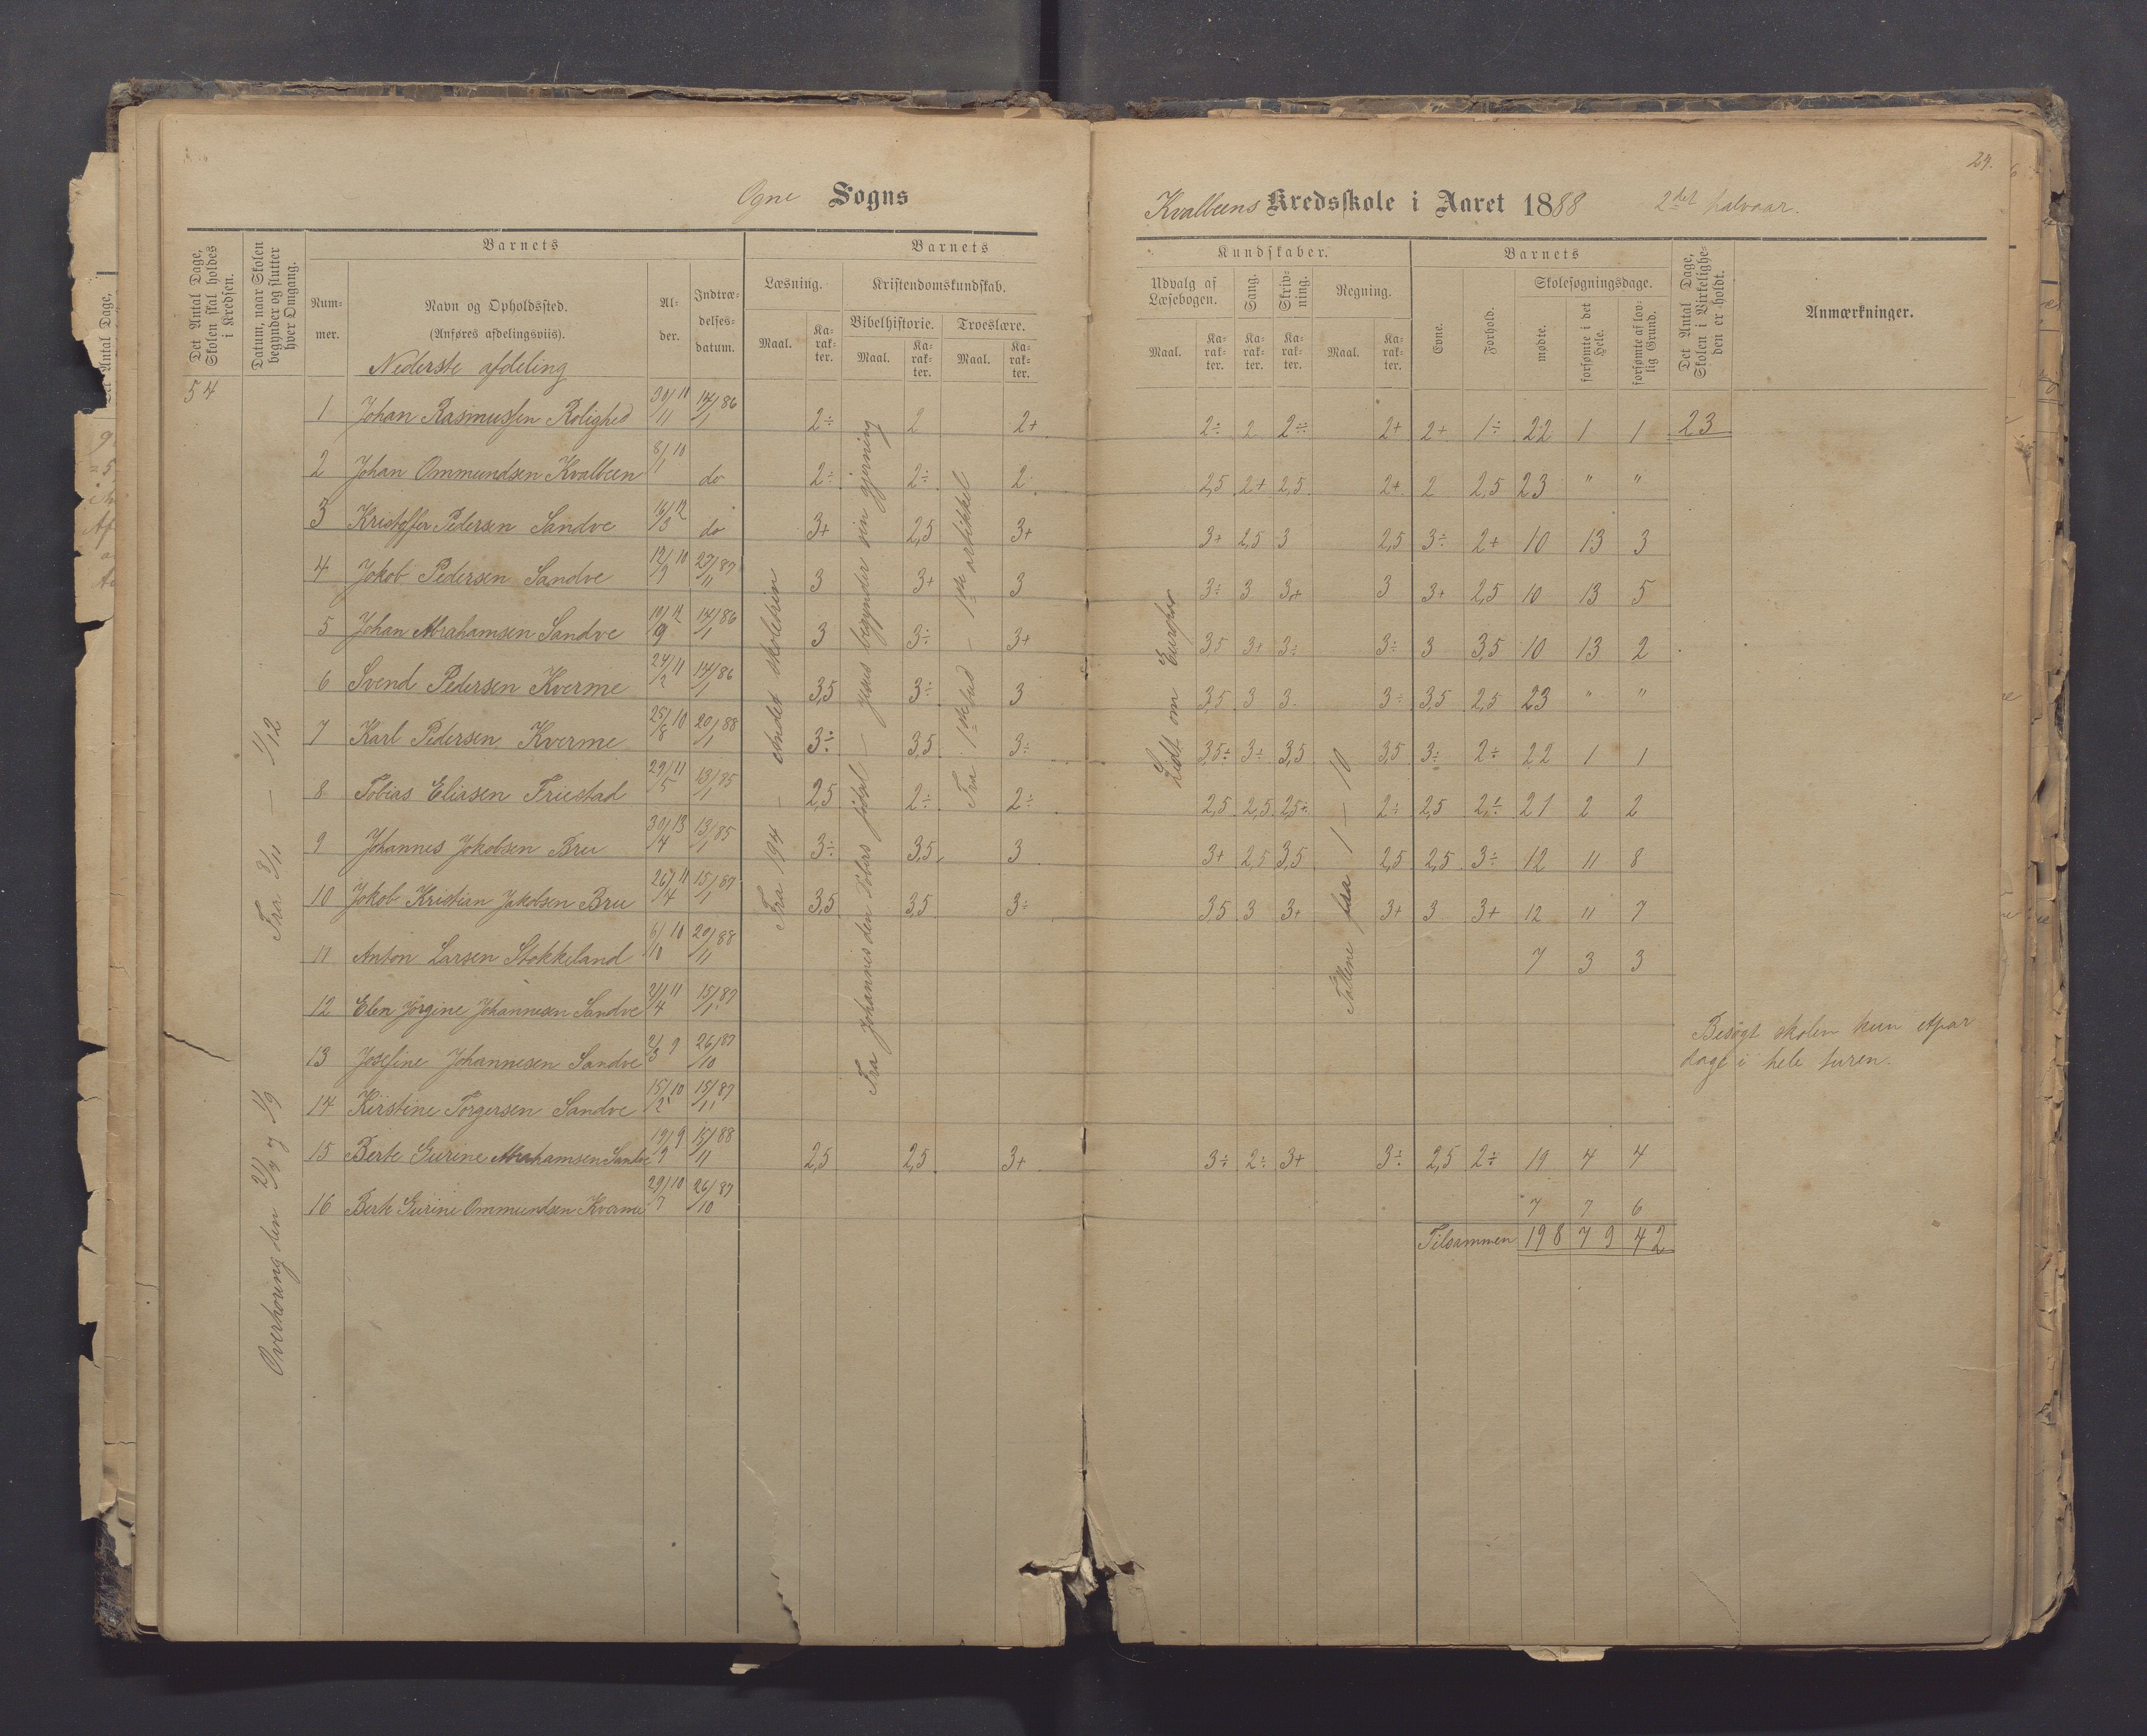 29.
Ogne Sogns
Kvalbeens Kredsskole i Aaret 1888 2det halvaar.
Det Antal Dage, Skolen skal holdes i Kredsen.
Datum, naar Skolen begynder og slutter hver Omgang.
Barnets
Num-mer.
Navn og Opholdssted.
(Anføres afdelingsviis).
Al-der.
Indtræ-delses-datum.
Barnets
Læsning.
Kristendomskundskab.
Bibelhistorie. Troeslære.
Maal. Ka-rak-ter. Maal. Ka-rak-ter. Maal. Ka-rak-ter.
Kundskaber.
Udvalg af Læsebogen. Sang. Skriv-ning. Regning.
Maal. Ka-rak-ter. Ka-rak-ter. Ka-rak-ter. Maal. Ka-rak-ter.
Barnets
Evne. Forhold. Skolesøgningsdage.
mødte. forsømte i det Hele. forsømte af lov-lig Grund.
Det Antal Dage, Skolen i Virkelighe-den er holdt.
Anmærkninger.
Nederste afdeling
54
1 Johan Rasmussen Rolighed 30/11 11 14/1 86 2÷ 2 2+ 2÷ 2 2÷ 2+ 2+ 1÷ 22 1 1 23
2 Johan Ommundsen Kvalbeen 8/1 10 do 2÷ 2÷ 2 2,5 2+ 2,5 2+ 2 2,5 23 " "
3 Kristoffer Pedersen Sandve 16/3 12 do 3+ 2,5 3+ 3+ 2,5 3 2,5 3÷ 2+ 10 13 3
4 Jakob Pedersen Sandve 12/9 10 27/11 87 3 3+ 3 3÷ 3 3+ 3 3+ 2,5 10 13 5
5 Johan Abrahamsen Sandve 10/9 12 14/1 86 3 3÷ 3+ 3,5 3+ 3÷ 3÷ 3 3,5 10 13 2
6 Svend Pedersen Kverme 24/2 11 14/1 86 3,5 3÷ 3 3,5 3 3 3÷ 3,5 2,5 23 " "
7 Karl Pedersen Kverme 25/8 10 20/1 88 3÷ 3,5 3÷ 3,5÷ 3÷ 3,5 3,5 3÷ 2÷ 22 1 1
8 Tobias Eliasen Friestad 29/5 11 13/1 85 2,5 2÷ 2÷ 2,5 2,5 2,5+ 2÷ 2,5 2÷ 21 2 2
9 Johannes Jakobsen Bru 30/4 13 13/1 85 3÷ 3,5 3 3+ 2,5 3,5 2,5 2,5 3÷ 12 11 8
10 Jakob Kristian Jakobsen Bru 26/4 11 15/1 87 3,5 3,5 3÷ 3,5 3 3+ 3+ 3 3+ 12 11 7
11 Anton Larsen Stokkeland 6/10 10 20/11 88 7 3 3
12 Elen Jörgine Johannesen Sandve 21/4 11 15/1 87
13 Josefine Johannesen Sandve 2/3 9 26/10 87
14 Kirstine Torgersen Sandve 15/2 10 15/11 87
15 Berte Gurine Abrahamsen Sandve 19/9 9 15/11 88 2,5 2,5 3+ 3÷ 2÷ 3+ 3÷ 2,5 2÷ 19 4 4
16 Berte Gurine Ommundsen Kverme 29/7 10 26/10 87 7 7 6
Tilsammen 198 79 42
Besögt skolen kun etpar
dage i hele turen.
Overhöring den 21/7 og 1/9 Fra 3/11 – 1/12
Fra 194 – andet skoletrin
Fra Johannes den Döbers födsel – Jesus begynder sin gjerning
Fra 1ste bud – 1ste artikkel
Lidt om Europa
Tallene fra 1 – 10